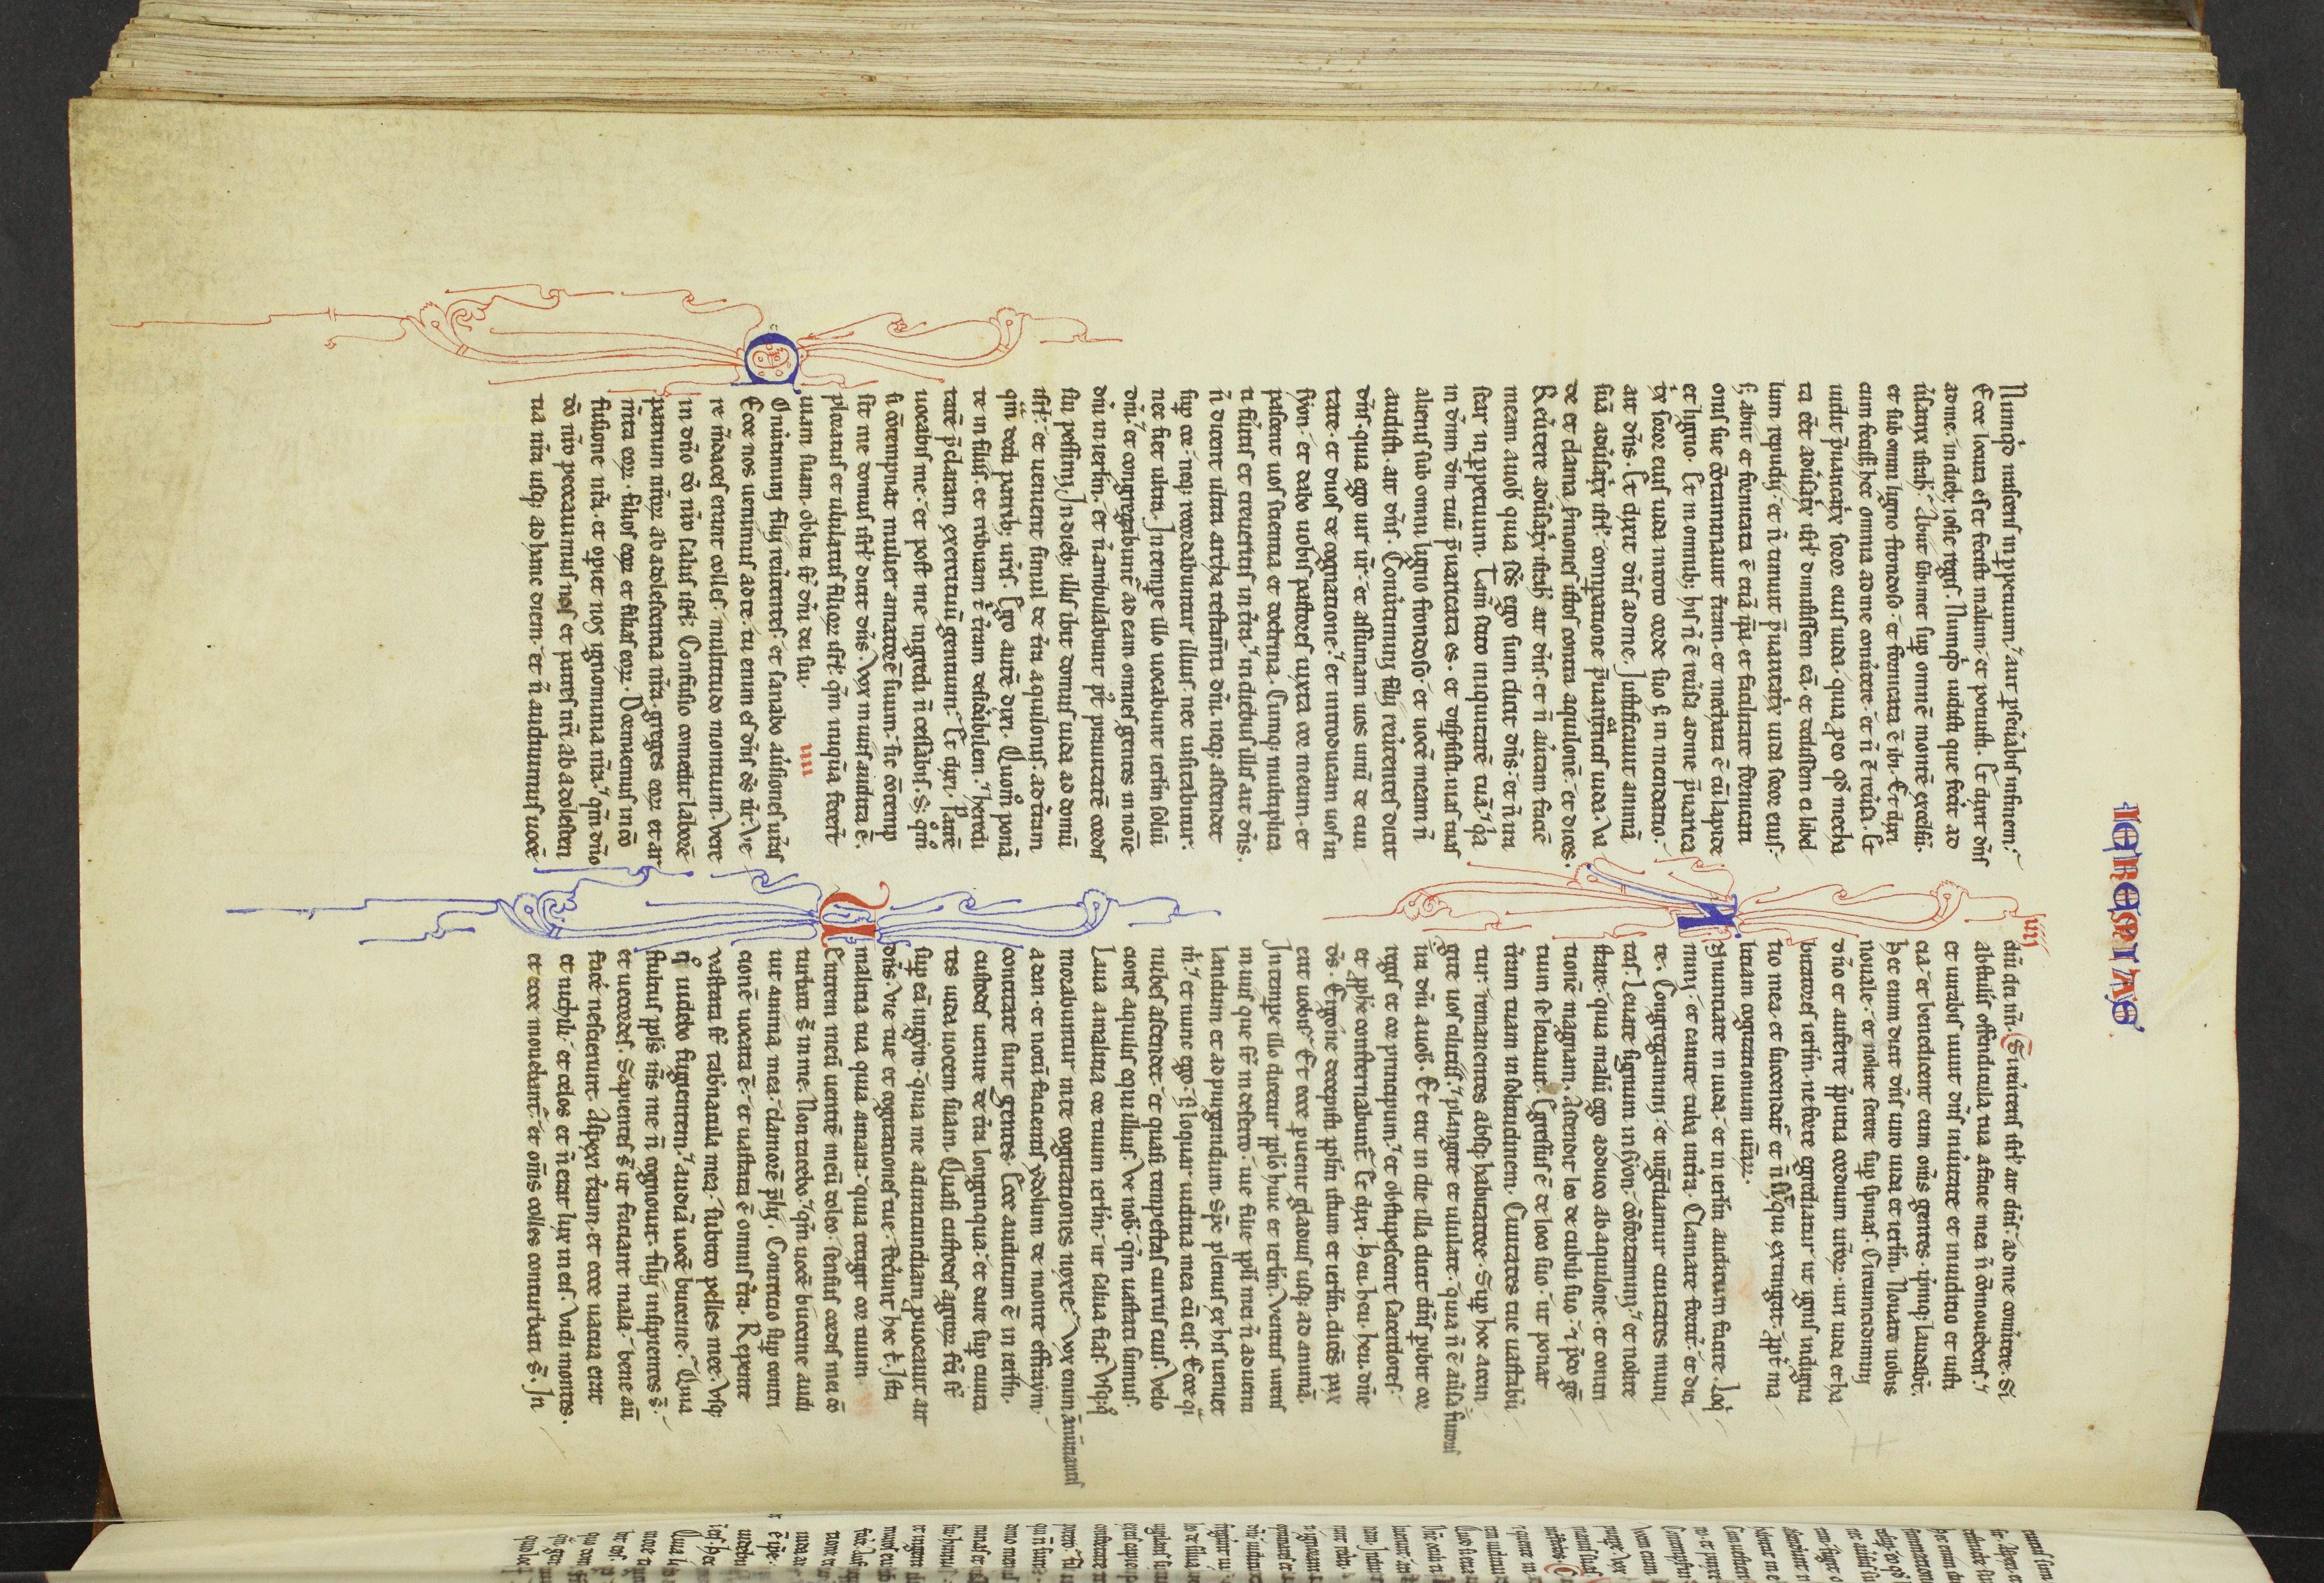 IEREMIAS
Numq̄d irascens inꝑpetuum.᷑ aut ꝑseu̾abis infinem.᷑
Ecce locuta es et fecisti malum.᷑ et potuisti. Et dixit dn̄s
ad me. in dieb; iosie regis. Numq̄d uidisti que fecit ad
u̾satrix isrl̄.᷑ Abiit sibimet suꝑ omnē montē excelsū.
et sub omni ligno frondoso.᷑ et fornicata ē ibi. Et dixi
cum fecisset hec omnia ad me conu̾tere.᷑ et n̄ ē reu̾sa. Et
uidit p̄uaricat̾x soror eius iuda. quia ꝓ eo qd̄ mecha
ta eēt adu̾sat̾x isrl̄ dimisissem eā. et dedissem ei libel
lum repudij.᷑ et n̄ timuit p̄uaricat̾x iuda soror eius.᷑
s; abiit et fornicata ē etiā ip̄a. et facilitate fornicati
onis sue c̄ōtaminauit t̾ram. et mechata ē cū lapide
et ligno. Et in omnib; his n̄ ē reu̾sa ad me p̄uarica
t̾x soror eius iuda in toto corde suo s; in mendatio.᷑
ait dn̄s. Et dixit dn̄s ad me. Iustificauit animā
suā adu̾sat̾x isrl̄.᷑ comꝑatione p̄uaricatricis iuda. Va
de et clama s̾mones istos contra aquilonē.᷑ et dices.
Reu̾tere adu̾sat̾x isrl̄ ait dn̄s. et n̄ au̾tam faciē
meam a uob̄ quia sc̄s ego sum dicit dn̄s.᷑ et n̄ ira
scar inꝑpetuum. Tam̄ scito iniquitatē tuā.᷑ q̄a
in dn̄m dm̄ tuū p̄uaricata es. et disꝑsisti uias tuas
alienis sub omni ligno frondoso.᷑ et uocē meam n̄
audisti. ait dn̄s. Conu̾timini filij reu̾tentes dicit
dn̄s. quia ego uir ur̄.᷑ et assumam uos unū de ciui
tate. et duos de cognatione.᷑ et introducam uos in
syon.᷑ et dabo uobis pastores iuxta cor meum. et
pascent uos scientia et doctrina. Cumq; multiplica
ti fu̾itis et creueritis in t̾ra.᷑ in diebus illis ait dn̄s.
n̄ dicent ultra archa testam̄ti dn̄i. neq; ascendet
suꝑ cor.᷑ neq; recordabuntur illius.᷑ nec uisitabitur.᷑
nec fiet ultra. In tempe illo uocabunt ierl̄m soliū
dn̄i.᷑ et congregabunt̾ ad eam omnes gentes in noīe
dn̄i in ierl̄m.᷑ et n̄ ambulabunt p̾t prauitatē cordis
sui pessimi. In dieb; illis ibit domus iuda ad domū
isrl̄.᷑ et uenient simul de t̾ra aquilonis.᷑ ad t̾ram
qm̄ dedi patrib; ur̄is. Ego autē dixi. Quom̊ ponā
te in filijs.᷑ et tribuam t̄ t̾ram desid̾abilem.᷑ heredi
tatē p̄claram exercituū gentium.᷑ Et dixi. patrē
uocabis me.᷑ et post me ingredi n̄ cessabis. S; qm̊
si cōtempnat mulier amatorē suum.᷑ sic cōtemp
sit me domus isrl̄ dicit dn̄s. Vox in uijs audita ē.᷑
ploratus et ululatus filior̄ isrl̄.᷑ qm̄ iniquā fecert̄
uiam suam. obliti st̄ dn̄i dei sui.
iiii
Onu̾timini filij reu̾tentes.᷑ et sanabo au̾siones ur̄as
Ecce nos uenimus ad te. tu enim es dn̄s ds̄ nr̄. Ve
re m̄daces erunt colles.᷑ multitudo montium. Vere
in dn̄o dō nr̄o salus isrl̄. Confusio comedit laborē
patrum nr̄or̄ ab adolescentia nr̄a. greges eor̄ et ar
m̄ta eor̄.᷑ filios eor̄ et filias eor̄. Dormiemus in cō
fusione nr̄a. et operiet nos ignominia nr̄a.᷑ qm̄ dn̄o
dō nr̄o peccauimus nos et patres nr̄i ab adolescen
tia nr̄a usq; ad hunc diem.᷑ et n̄ audiuimus uocē
iiii
dn̄i dei nr̄i. Si reu̾teris isrl̄ ait dn̄s.᷑ ad me conu̾tere. Si
abstulis offendicula tua a facie mea n̄ cōmoueberis.᷑ ⁊
et iurabis uiuit dn̄s in u̾itate et in iuditio et iusti
cia.᷑ et benedicent eum om̄s gentes. ip̄mq; laudabt̾.
Hec enim dicit dn̄s uiro iuda et ierl̄m. Nouate uobis
nouale.᷑ et nolite serere suꝑ spinas. Circumcidimini
dn̄o et auferte p̄putia cordium ur̄or̄. uiri iuda et ha
bitatores ierl̄m. ne forte egrediatur ut ignis indigna
tio mea. et succendat̾ et n̄ sit qui extinguat. ꝓpt̾ ma
litiam cogitationum ur̄ar̄.
Annuntiate in iuda.᷑ et in ierl̄m auditum facite. Loq̄
mini.᷑ et canite tuba in t̾ra. Clamate fortit̾.᷑ et dici
te. Congregamini.᷑ et ing̾diamur ciuitates muni
tas. Leuate signum in syon.᷑ cōfortamini.᷑ et nolite
stare.᷑ quia malū ego adduco ab aquilone.᷑ et contri
tionē magnam. Ascendit leo de cubili suo.᷑ ⁊ p̄do gē
tium se leuauit. Egressus ē de loco suo.᷑ ut ponat
t̾ram tuam in solitudinem. Ciuitates tue uastabū
tur.᷑ remanentes absq; habitatore. Suꝑ hoc accin
gite uos cilicijs.᷑ plangite et ululate.᷑ quia n̄ ē au̾sa ira furoris
dn̄i a uob̄. Et erit in die illa dicit dn̄s ꝑibit cor
regis et cor principum.᷑ et obstupescent sacerdotes.᷑
et ꝓph̄e consternabunt̾. Et dixi. heu. heu. heu. dn̄e
ds̄. Ergo ne decepisti ppl̄m istum et ierl̄m. dicēs pax
erit uobis.᷑ Et ecce ꝑuenit gladius usq; ad animā.
In tempe illo dicetur ppl̄o huic et ierl̄m. Ventus urens
in uijs que st̄ in deserto.᷑ uie filie ppl̄i mei n̄ ad uenti
landum et ad purgandum. Sp̄s plenus ex his ueniet
m̄.᷑ et nunc ego.᷑ s; loquar iuditia mea cū eis. Ecce q̄si
nubes ascendet.᷑ et quasi tempestas currus eius. Velo
ciores aquilis equi illius.᷑ Ve nob̄.᷑ qm̄ uastati sumus.
Laua a malitia cor tuum ierl̄m.᷑ ut salua fias. Vsq;q̊
morabuntur in te cogitationes noxie.᷑ Vox enim annūtiantis
a dan.᷑ et notū facientis ydolum de monte effraym.
concitate sunt gentes. Ecce auditum ē in ierl̄m.
custodes uenire de t̾ra longinqua.᷑ et dare suꝑ ciuita
tes iuda uocem suam. Quasi custodes agror̄ fc̄i st̄
suꝑ eā in giro.᷑ quia me ad iracundiam ꝓuocauit ait
dn̄s. Vie tue et cogitationes tue.᷑ fecerunt hec t̄. Ista
malitia tua quia amara.᷑ quia tetigit cor tuum
Ventrem meū uentrē meū doleo.᷑ sensus cordis mei cō
turbati s̄t in me. Non tacebo.᷑ qm̄ uocē buccine audi
uit anima mea.᷑ clamorē p̄lij. Contricio suꝑ contri
cionē uocata ē.᷑ et uastata ē omnis t̾ra. Repente
uastata st̄ tab̾nacula mea.᷑ subito pelles mee. Vsq;
q̊ uidebo fugientem.᷑ audiā uocē buccine.᷑ Quia
stultus ppl̄s m̄s me n̄ cognouit. filij insipientes s̄t
et uecordes. Sapientes s̄t ut faciant mala.᷑ bene aū
facē nescierunt. Aspexi t̾ram. et ecce uacua erat
et nichili.᷑ et celos et n̄ erat lux in eis. Vidi montes.
et ecce mouebant̾.᷑ et om̄s colles conturbati s̄t. In